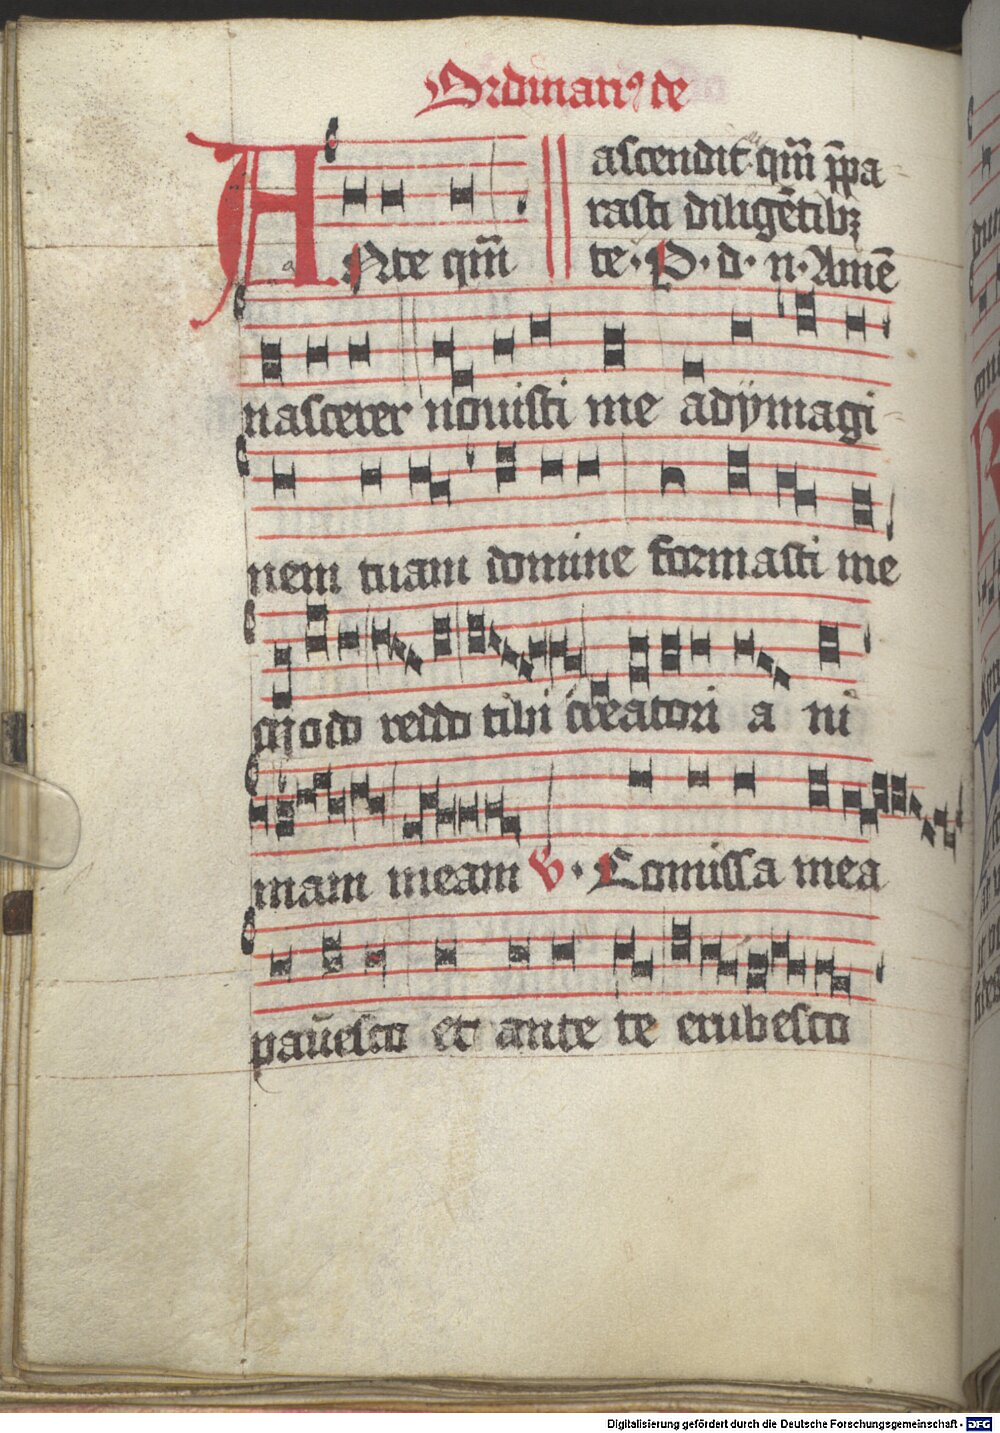 Ordinariꝰ de
ascendit qm̄ p̄pa
rasti diligētibꝫ
te. P. d. n. Amē
ANte qm̄
nascerer nouisti me adÿmagi
nem tuam domine formasti me
modo reddo tibi creatori a ni
mam meam v. Comissa mea
pau̅esco et ante te erubesco
Digitalisierung gefördert durch die Deutsche Forschungsgemeinschaft - DFG